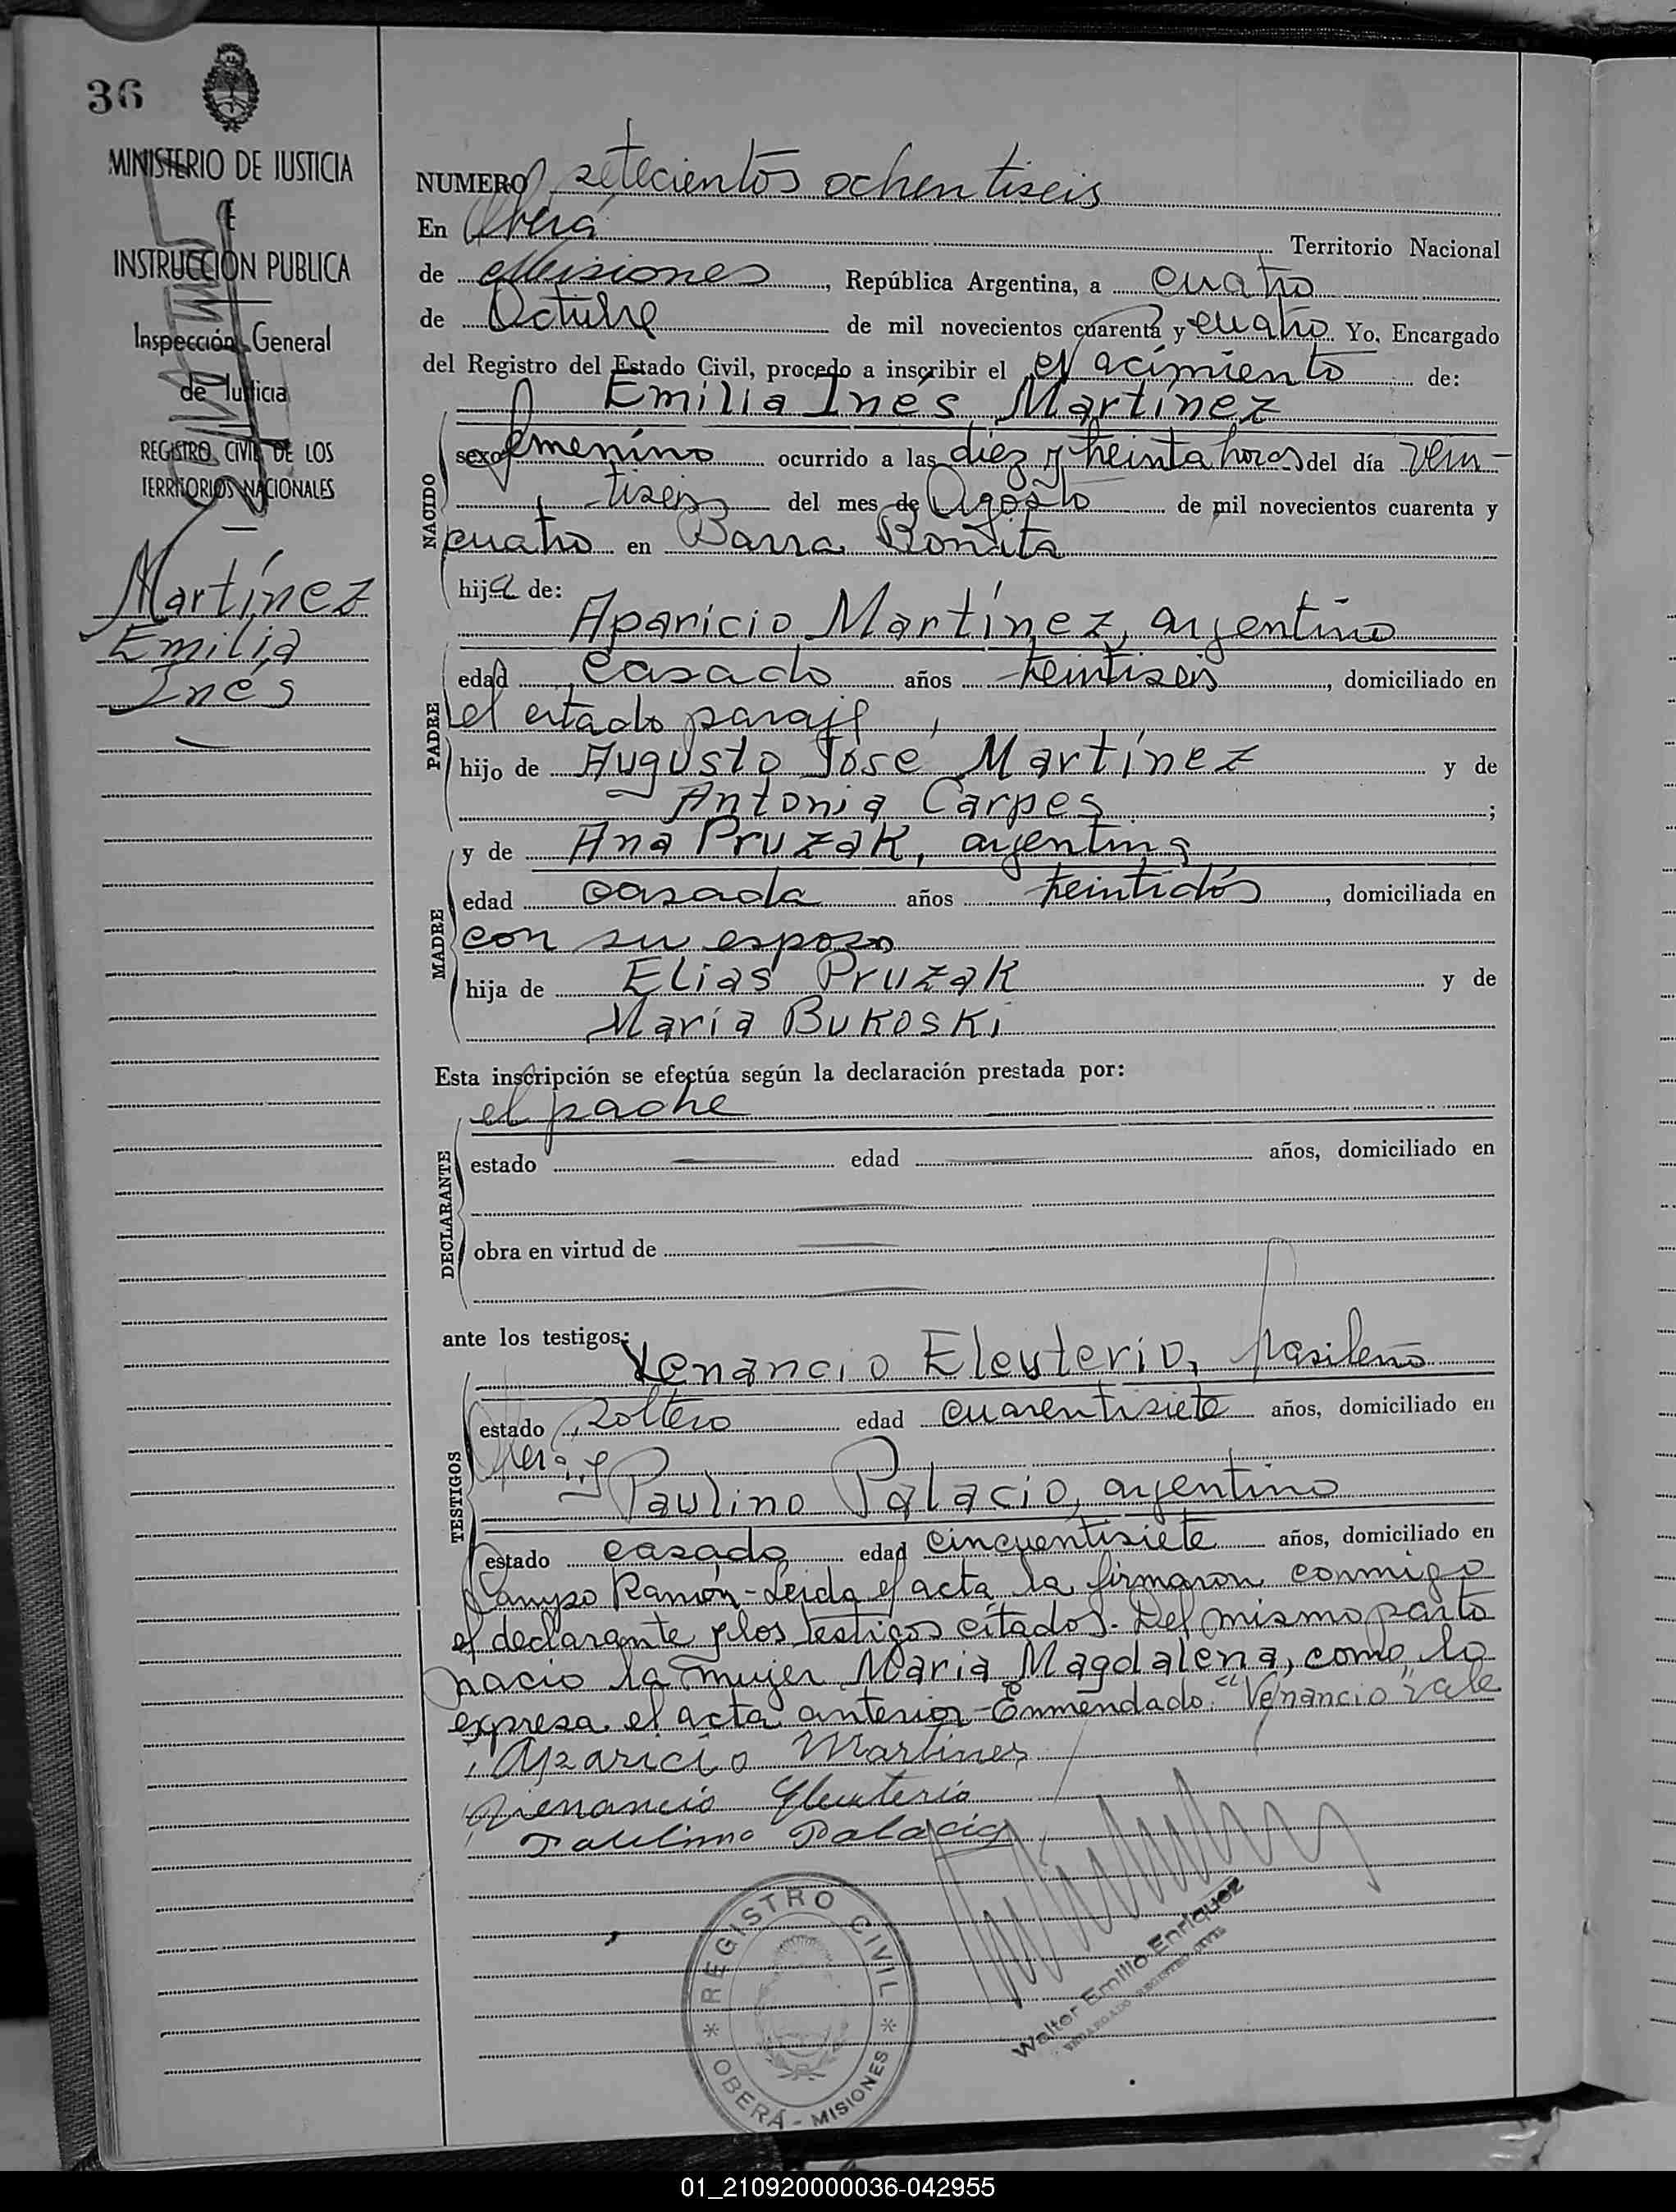 36
MINISTERIO DE JUSTICIA
E
INSTRUCCIÓN PUBLICA
Inspección General
de Justicia
REGISTRO CIVIL DE LOS
TERRITORIOS NACIONALES
Martínez
Emilia
Inés
NUMERO setecientos ochentiseis
En Oberá Territorio Nacional
de Misiones, República Argentina, a cuatro
de Octubre de mil novecientos cuarenta y cuatro Yo, Encargado
del Registro del Estado Civil, procedo a inscribir el Nacimiento de:
Emilia Inés Martínez
NACIDO
sexo femenino ocurrido a las diez y treinta horas del día vein-
tiseis del mes de Agosto de mil novecientos cuarenta y
cuatro en Barra Bonita
hija de:
Aparicio Martínez, argentino
PADRE
edad casado años treintiseis, domiciliado en
el citado paraje,
hijo de Augusto José Martínez y de
Antonia Carpes;
y de Ana Pruzak, argentina
MADRE
edad casada años treintidós, domiciliada en
con su esposo
hija de Elias Pruzak y de
María Bukoski
Esta inscripción se efectúa según la declaración prestada por:
el padre
DECLARANTE
estado edad años, domiciliado en
obra en virtud de
ante los testigos:
Venancio Eleuterio, brasileño
TESTIGOS
estado soltero edad cuarentisiete años, domiciliado en
Oberá y
Paulino Palacio, argentino
estado casado edad cincuentisiete años, domiciliado en
Campo Ramón-Leida el acta la firmaron conmigo
el declarante y los testigos citados. Del mismo parto
nacio la mujer María Magdalena, como lo
expresa el acta anterior-Enmendado: "Venancio" vale
Aparicio Martines
Venancio Eleuterio
Paulino Palacio
REGISTRO CIVIL
* OBERÁ - MISIONES *
Walter Emilio Enriquez
ENCARGADO REGISTRO CIVIL
01_210920000036-042955